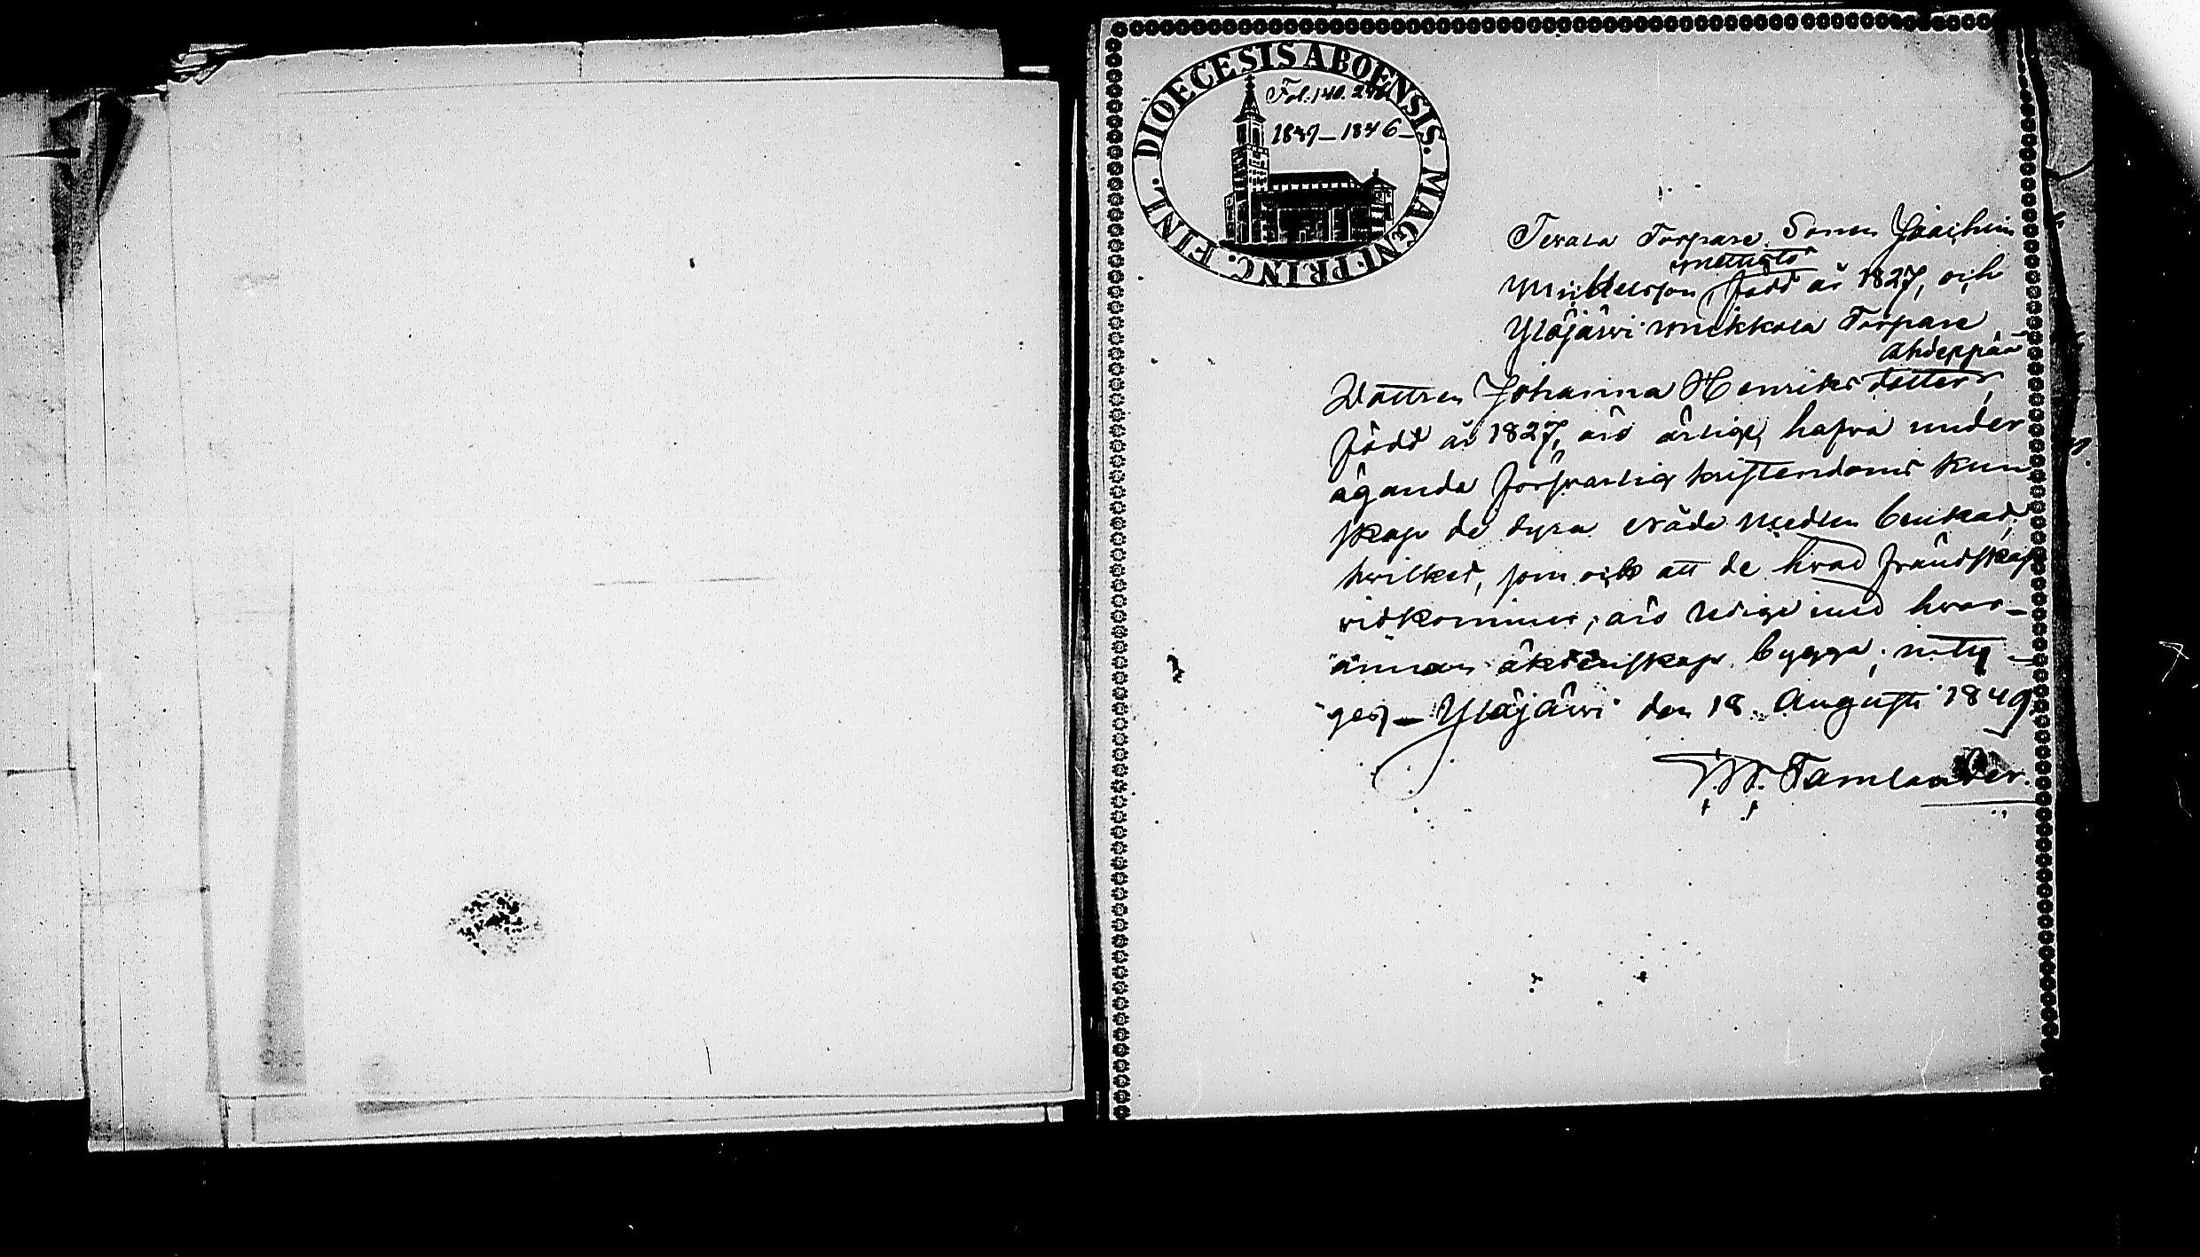 DIOECESIS ABOENSIS. MAGNI PRINC. FINL.
Fol. 140.
1847–1846–
Torpare Sonen Joachim
Michelsson, född år 1827, och
Ylöjärvi Mikkola Torpare
Dottren Johanna Henriks dotter,
född år 1827, äro ärlige, hafva under
ägande försvarlig kristendoms kun
skap de dyra Nåde medlen brukad,
hvilket, som ock att de hvad frändskap
vidkommer, äro ledige med hvar–
annan äktenskap bygga, inty–
gas, – Ylöjärvi den 18 Augusti 1849.
Tamlander.